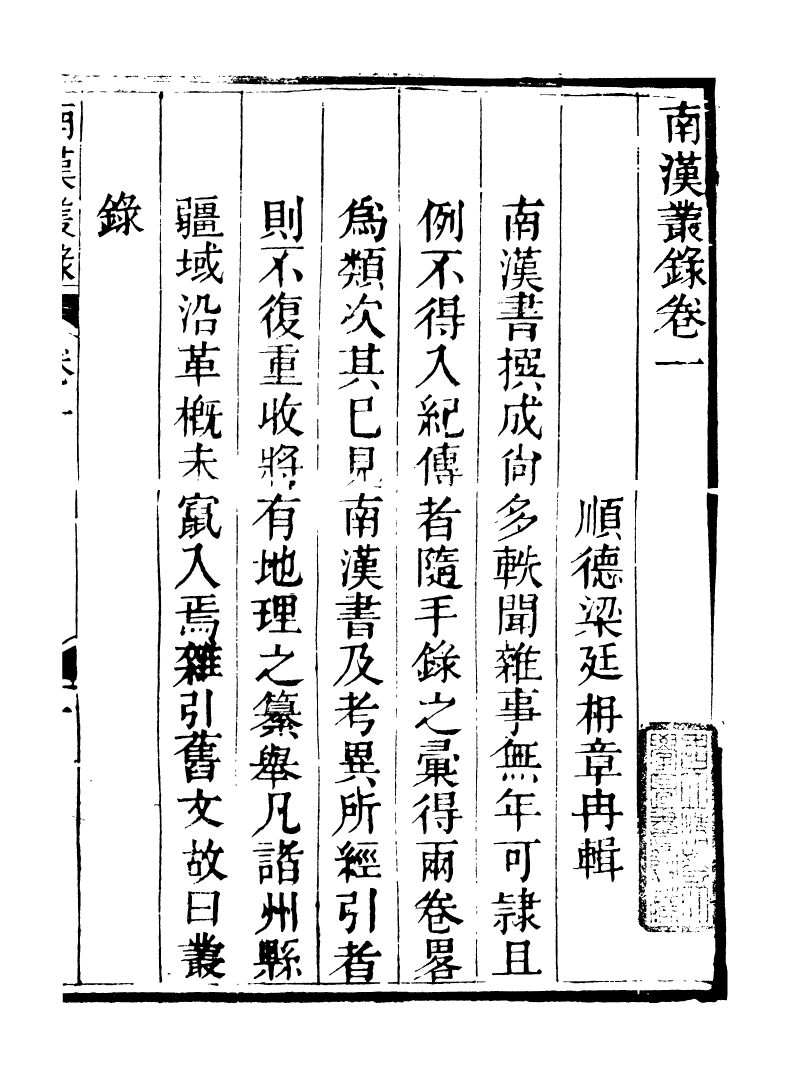 南漢叢錄卷一
順德梁廷枏章冉輯
南漢書撰成尙多軼聞雜事無年可隷且
例不得入紀傳者隨手錄之彚得兩卷畧
爲類次其已見南漢書及考異所經引者
則不復重收將有地理之纂舉凡諸州縣
疆域沿革槪未竄入焉雜引舊文故曰叢
錄
南漢叢錄 卷一 一